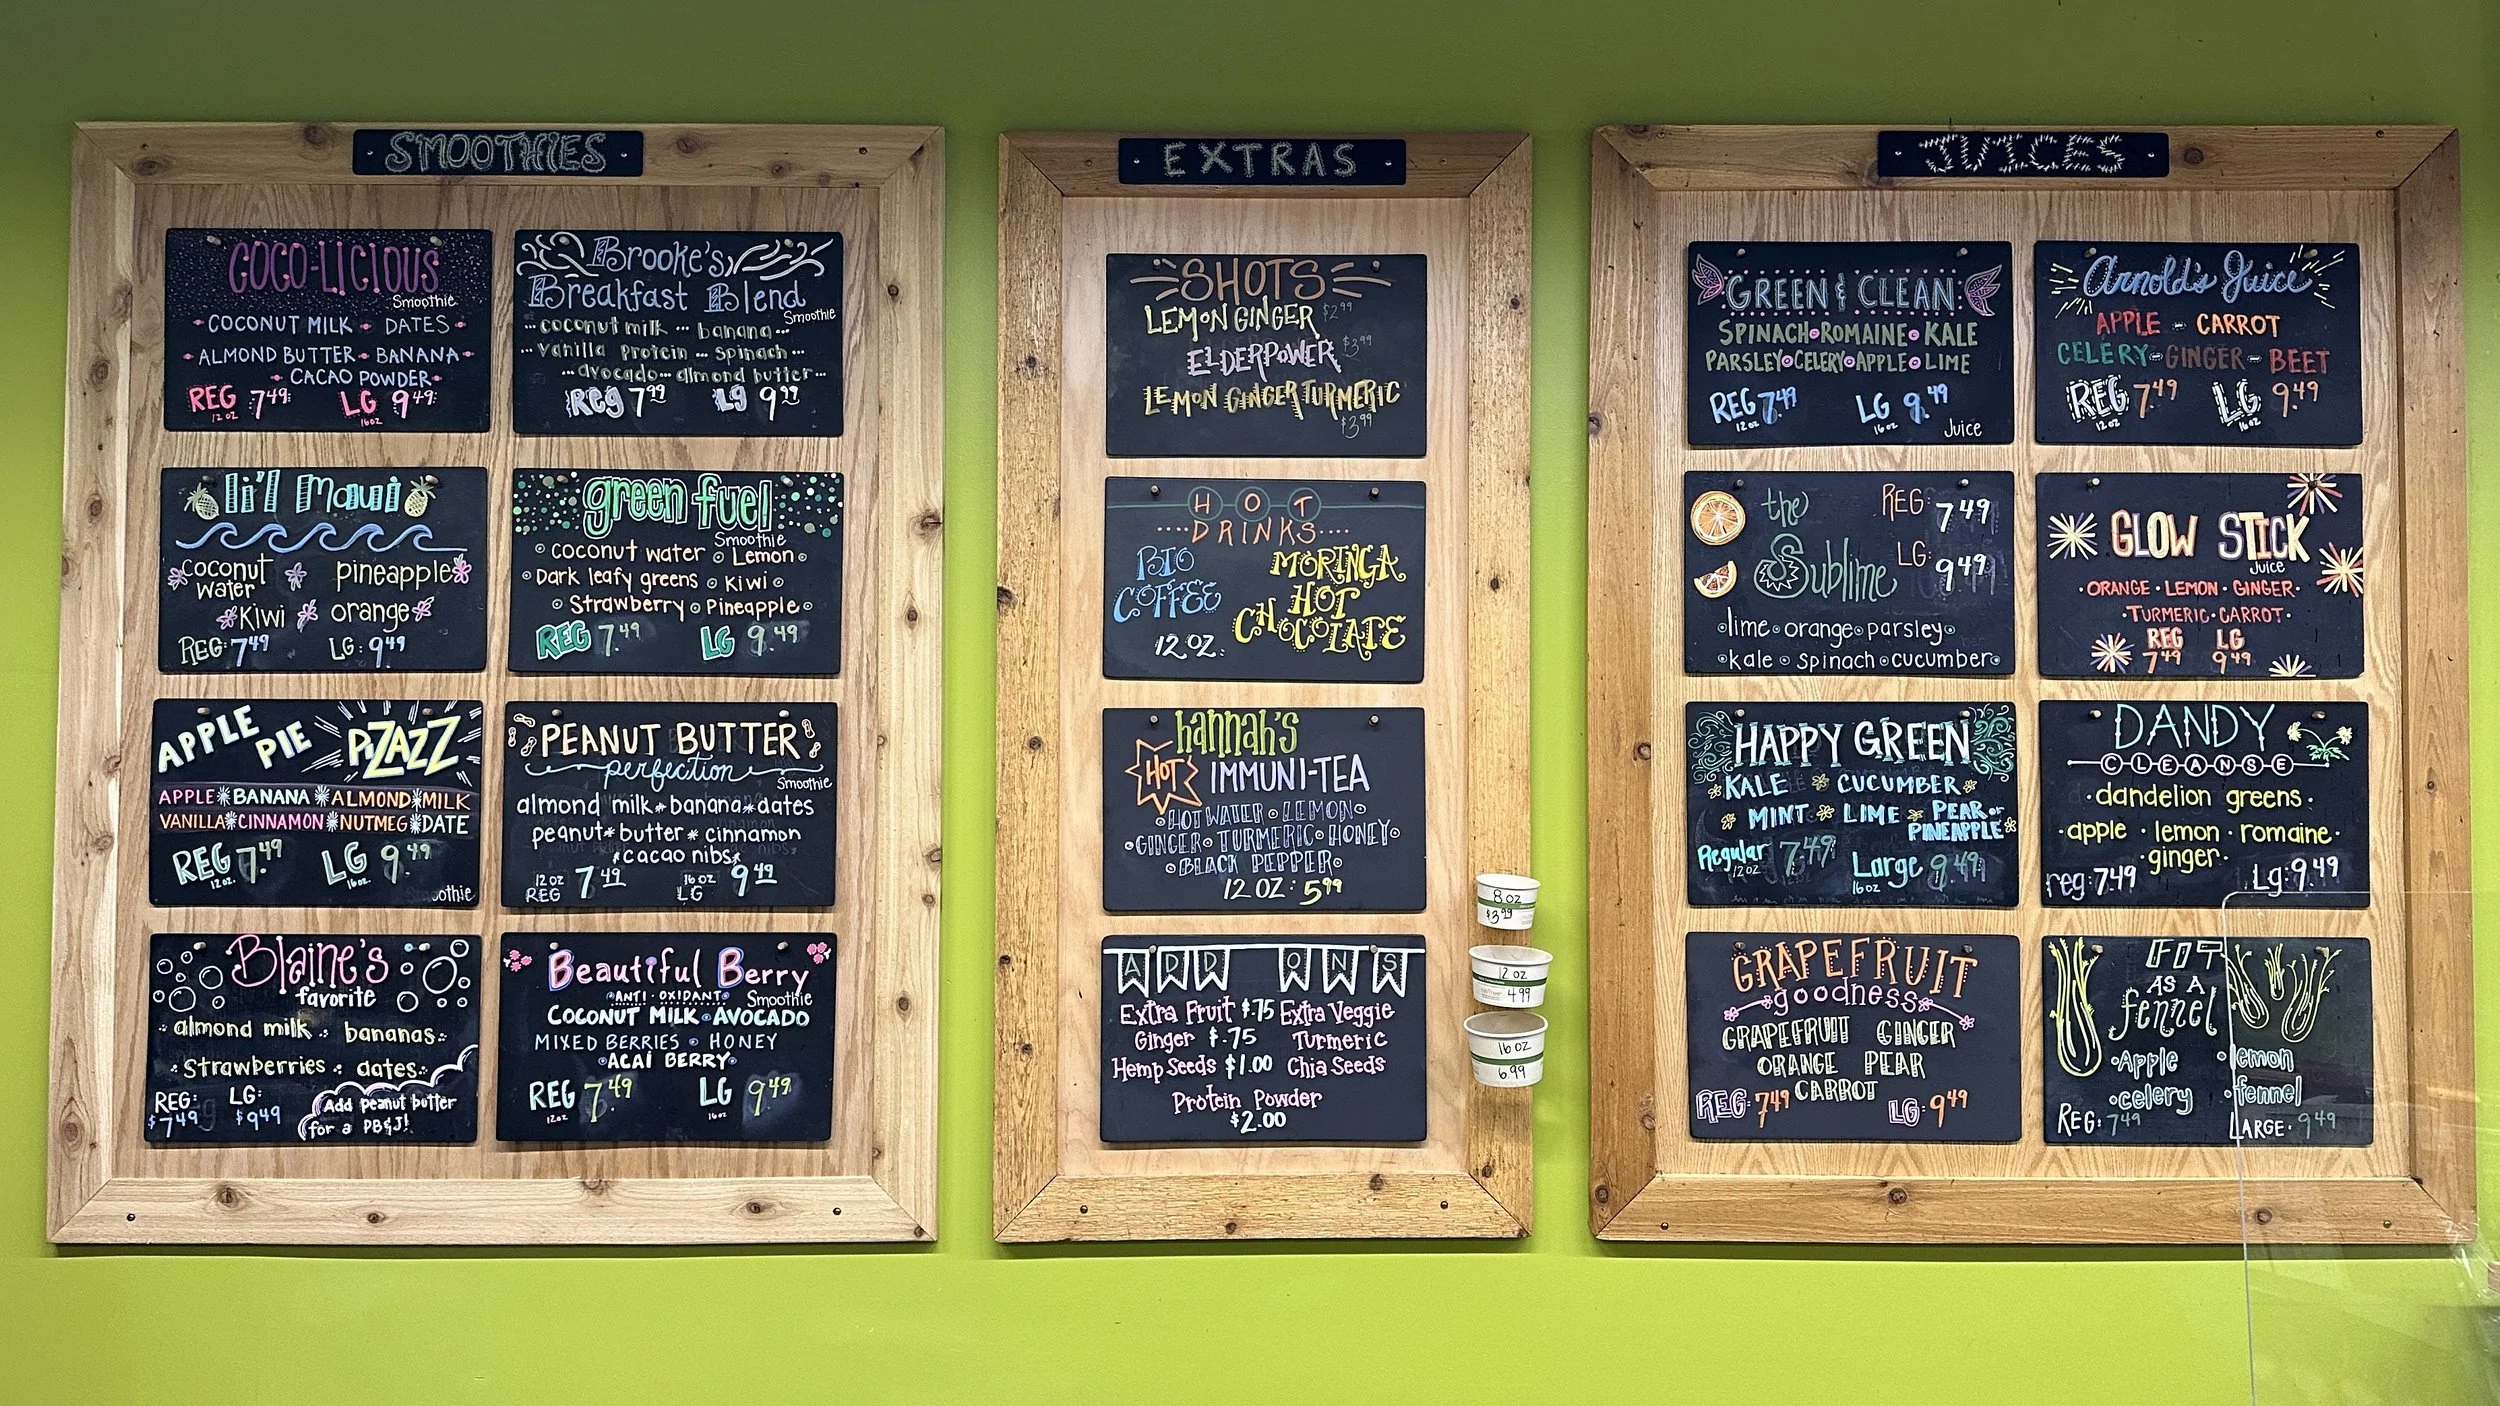 SMOOTHIES
COCO-LICIOUS
Smoothie
COCONUT MILK DATES
ALMOND BUTTER BANANA
CACAO POWDER
REG 7.49 LG 9.49
12 oz 16oz
Brooke's
Breakfast Blend
Smoothie
coconut milk banana
vanilla protein spinach
avocado almond butter
Reg 7.99 Lg 9.99
li'l Maui
coconut pineapple
water
Kiwi orange
REG: 7.49 LG: 9.49
green fuel
Smoothie
coconut water Lemon
Dark leafy greens Kiwi
Strawberry Pineapple
REG 7.49 LG 9.49
APPLE PIE PIZAZZ
APPLE BANANA ALMOND MILK
VANILLA CINNAMON NUTMEG DATE
REG 7.49 LG 9.49
12 oz. 16oz.
PEANUT BUTTER
perfection
Smoothie
almond milk banana dates
peanut butter cinnamon
cacao nibs
12 oz REG 7.49 16 oz LG 9.49
Blaine's
favorite
almond milk bananas
Strawberries dates
REG: LG:
$7.49 $9.49
Add peanut butter
for a PB&J!
Beautiful Berry
ANTI-OXIDANT Smoothie
COCONUT MILK AVOCADO
MIXED BERRIES HONEY
ACAÍ BERRY
REG 7.49 LG 9.49
12oz 16oz
EXTRAS
SHOTS
LEMON GINGER $2.99
ELDERPOWER $3.99
LEMON GINGER TURMERIC
$3.99
HOT
DRINKS
BIO
COFFEE
MORINGA
HOT
CHOCOLATE
12 OZ.
hannah's
HOT IMMUNI-TEA
HOT WATER LEMON
GINGER TURMERIC HONEY
BLACK PEPPER
12 OZ: 5.99
ADD ONS
Extra Fruit $.75 Extra Veggie
Ginger $.75 Turmeric
Hemp Seeds $1.00 Chia Seeds
Protein Powder
$2.00
8 oz
$3.99
12 oz
4.99
16 oz
6.99
JUICES
GREEN & CLEAN
SPINACH ROMAINE KALE
PARSLEY CELERY APPLE LIME
REG 7.49 LG 9.49
12 oz 16 oz Juice
Arnold's Juice
APPLE - CARROT
CELERY - GINGER - BEET
REG 7.49 LG 9.49
12 oz 16oz
the
Sublime
REG: 7.49
LG: 9.49
lime orange parsley
kale spinach cucumber
GLOW STICK
Juice
ORANGE · LEMON · GINGER
TURMERIC · CARROT
REG LG
7.49 9.49
HAPPY GREEN
KALE CUCUMBER
MINT LIME PEAR or
PINEAPPLE
Regular 7.49 Large 9.49
12oz 16oz
DANDY
CLEANSE
dandelion greens
apple · lemon · romaine
ginger
reg: 7.49 Lg: 9.49
GRAPEFRUIT
goodness
GRAPEFRUIT GINGER
ORANGE PEAR
CARROT
REG: 7.49 LG: 9.49
FIT
AS A
fennel
Apple lemon
celery fennel
REG: 7.49 LARGE· 9.49